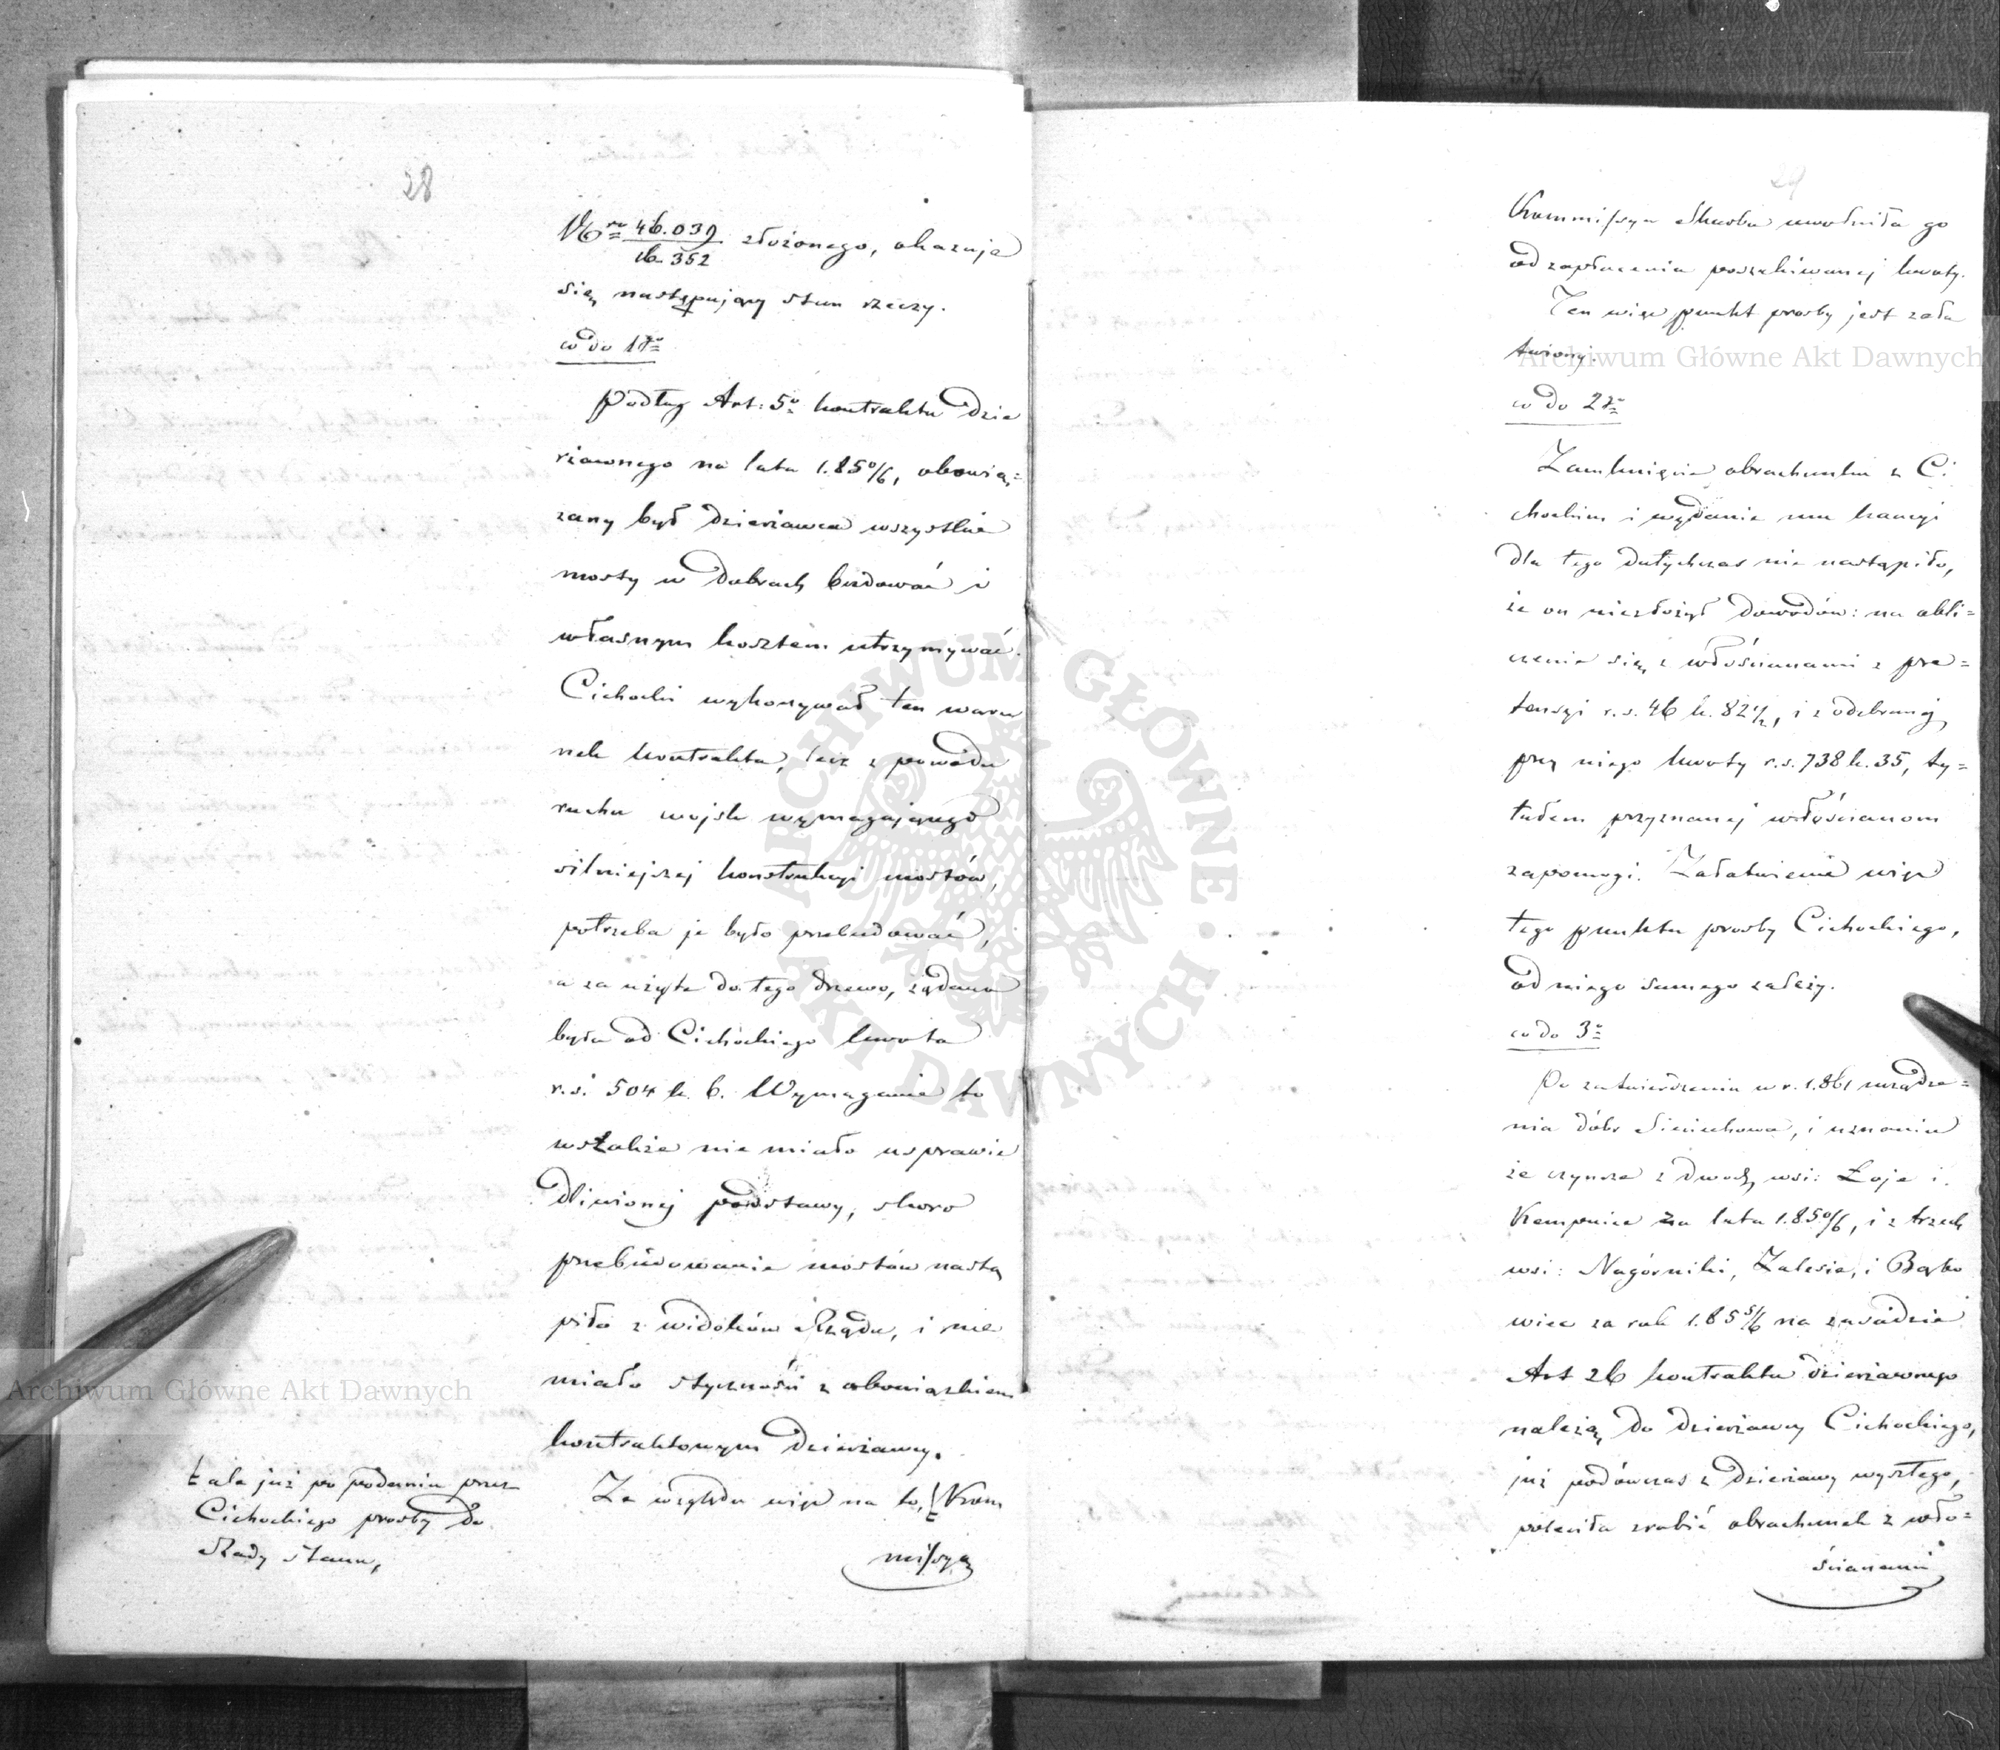 28
Nro 46.039/16.352 złożonego, okazuje
się następujący stan rzeczy.
co do 1go
Podług Art: 5o kontraktu dzie
rżawnego na lata 1.850/6, obowią=
zany był dzierżawca wszystkie
mosty w dobrach budować i
własnym kosztem utrzymywać.
Cichocki wykonywał ten waru
nek kontraktu, lecz z powodu
ruchu wojsk wymagającego
silniejszej konstrukcyi mostów,
potrzeba je było przebudować,
a za użyte do tego drzewo, żądana
była od Cichockiego kwota
r.s. 504 k. 6. Wymaganie to
wszakże nie miało usprawie
dliwionej podstawy, skoro
przebudowanie mostów nastą
piło z widoków Rządu, i nie
miało styczności z obowiązkiem
kontraktowym dzierżawcy.
Ze względu więc na to, Ł Kom
missya
Ł ale już po podaniu przez
Cichockiego prośby do
Rady Stanu,
29
Kommissya Skarbu uwolniła go
od zapłacenia poszukiwanej kwoty.
Ten więc punkt prośby jest zała
twiony.
co do 2go
Zamknięcie obrachunku z Ci
chockim i wydanie mu kaucyi
dla tego dotychczas nie nastąpiło,
że on niezłożył dowodów: na obli=
czenie się z włościanami z pre=
tensyi r.s. 46 k. 82 1/2, i z odebranej
przez niego kwoty r.s. 738 k. 35, ty=
tułem przyznanej włościanom
zapomogi. Załatwienie więc
tego punktu prośby Cichockiego,
od niego samego zależy.
co do 3o
Po zatwierdzeniu w r. 1.861 urządze=
nia dóbr Sieciechowa, i uznaniu
że czynsze z dwóch wsi: Łoje i
Kempnice za lata 1.850/6, i z trzech
wsi: Nagórniki, Zalesie, i Bąko
wiec za rok 1.855/6 na zasadzie
Art 26 kontraktu dzierżawnego
należą do dzierżawcy Cichockiego,
już podówczas z dzierżawy wyszłego,
poleciła zrobić obrachunek z wło=
ścianami
Archiwum Główne Akt Dawnych
Archiwum Główne Akt Dawnych
ARCHIWUM GŁÓWNE AKT DAWNYCH